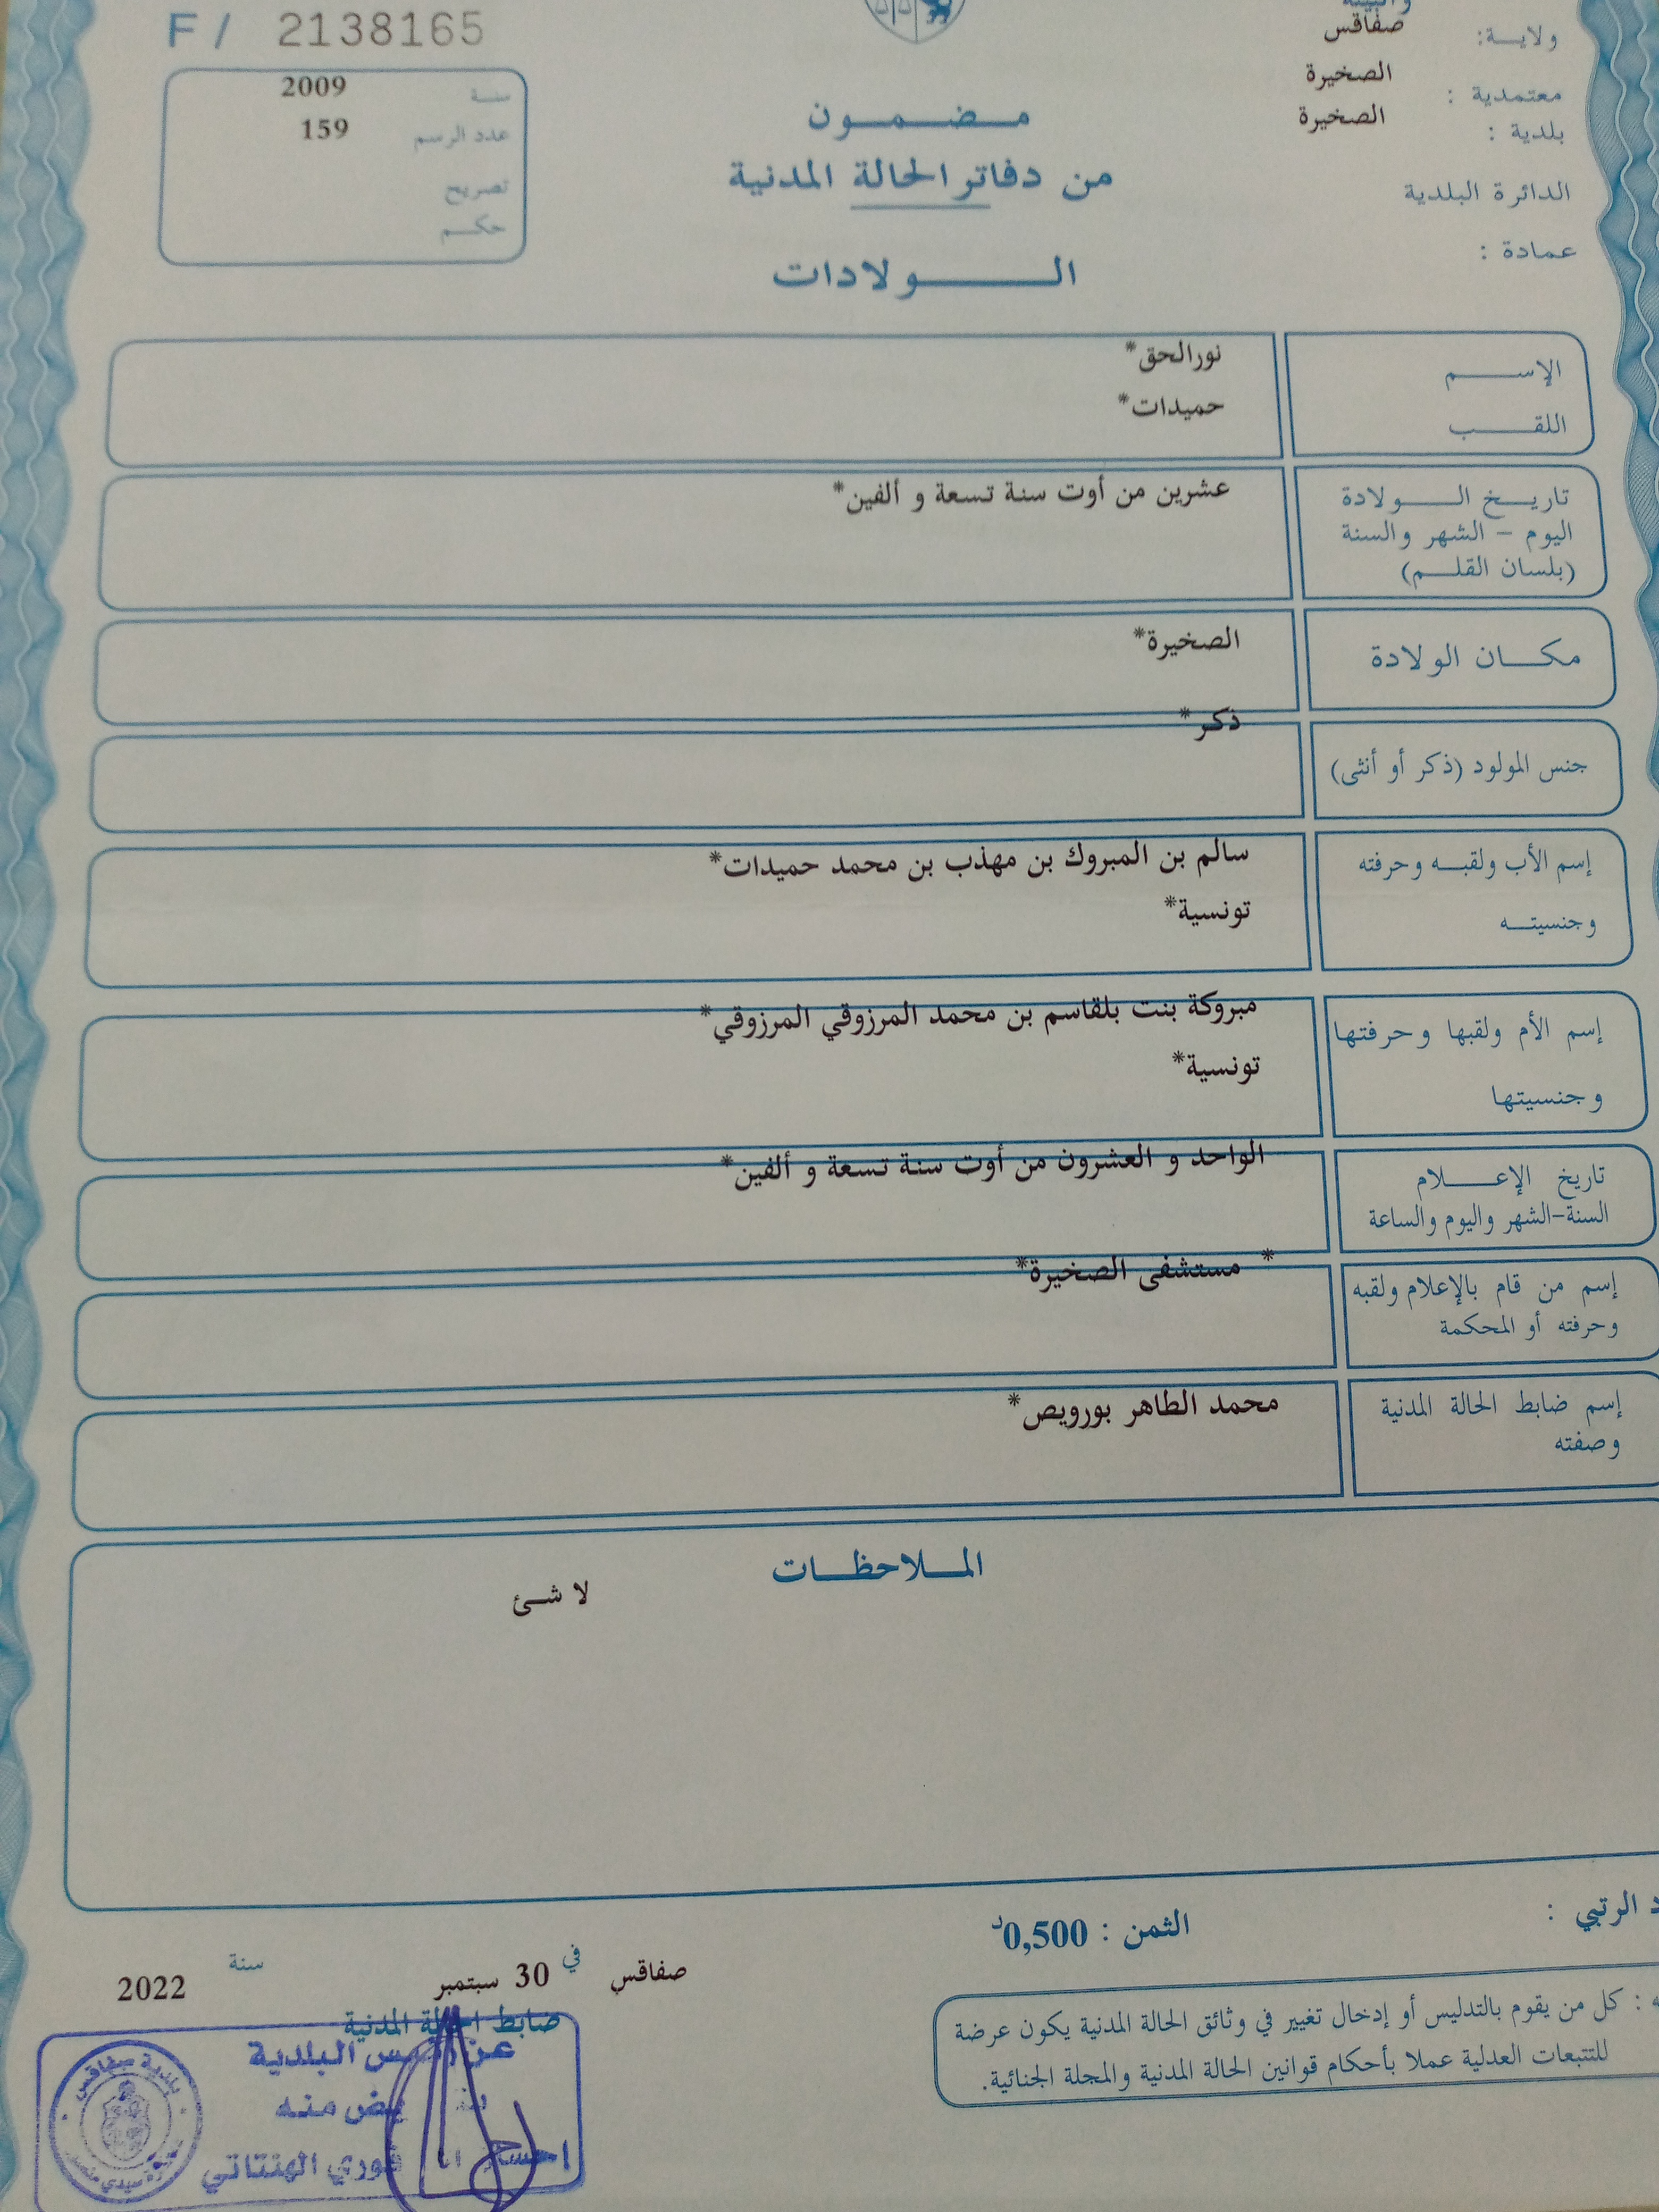 والبيئة
ولاية: صفاقس
معتمدية : الصخيرة
بلدية : الصخيرة
الدائرة البلدية
عمادة :
F / 2138165
سنة 2009
عدد الرسم 159
تصريح
حكم
مضمون
من دفاتر الحالة المدنية
الولادات
الإسم نورالحق*
اللقب حميدات*
تاريخ الولادة عشرين من أوت سنة تسعة و ألفين*
اليوم – الشهر والسنة
(بلسان القلم)
مكان الولادة الصخيرة*
جنس المولود (ذكر أو أنثى) ذكر*
إسم الأب ولقبه وحرفته سالم بن المبروك بن مهذب بن محمد حميدات*
وجنسيته تونسية*
إسم الأم ولقبها وحرفتها مبروكة بنت بلقاسم بن محمد المرزوقي المرزوقي*
وجنسيتها تونسية*
تاريخ الإعلام الواحد و العشرون من أوت سنة تسعة و ألفين*
السنة-الشهر واليوم والساعة
إسم من قام بالإعلام ولقبه * مستشفى الصخيرة*
وحرفته أو المحكمة
إسم ضابط الحالة المدنية محمد الطاهر بورويص*
وصفته
الملاحظات
لا شئ
الرتبي :
الثمن : 0,500د
صفاقس في 30 سبتمبر سنة 2022
ضابط الحالة المدنية
: كل من يقوم بالتدليس أو إدخال تغيير في وثائق الحالة المدنية يكون عرضة
للتتبعات العدلية عملا بأحكام قوانين الحالة المدنية والمجلة الجنائية.
البلدية
منه
فوزي الهنتاتي
بلدية صفاقس